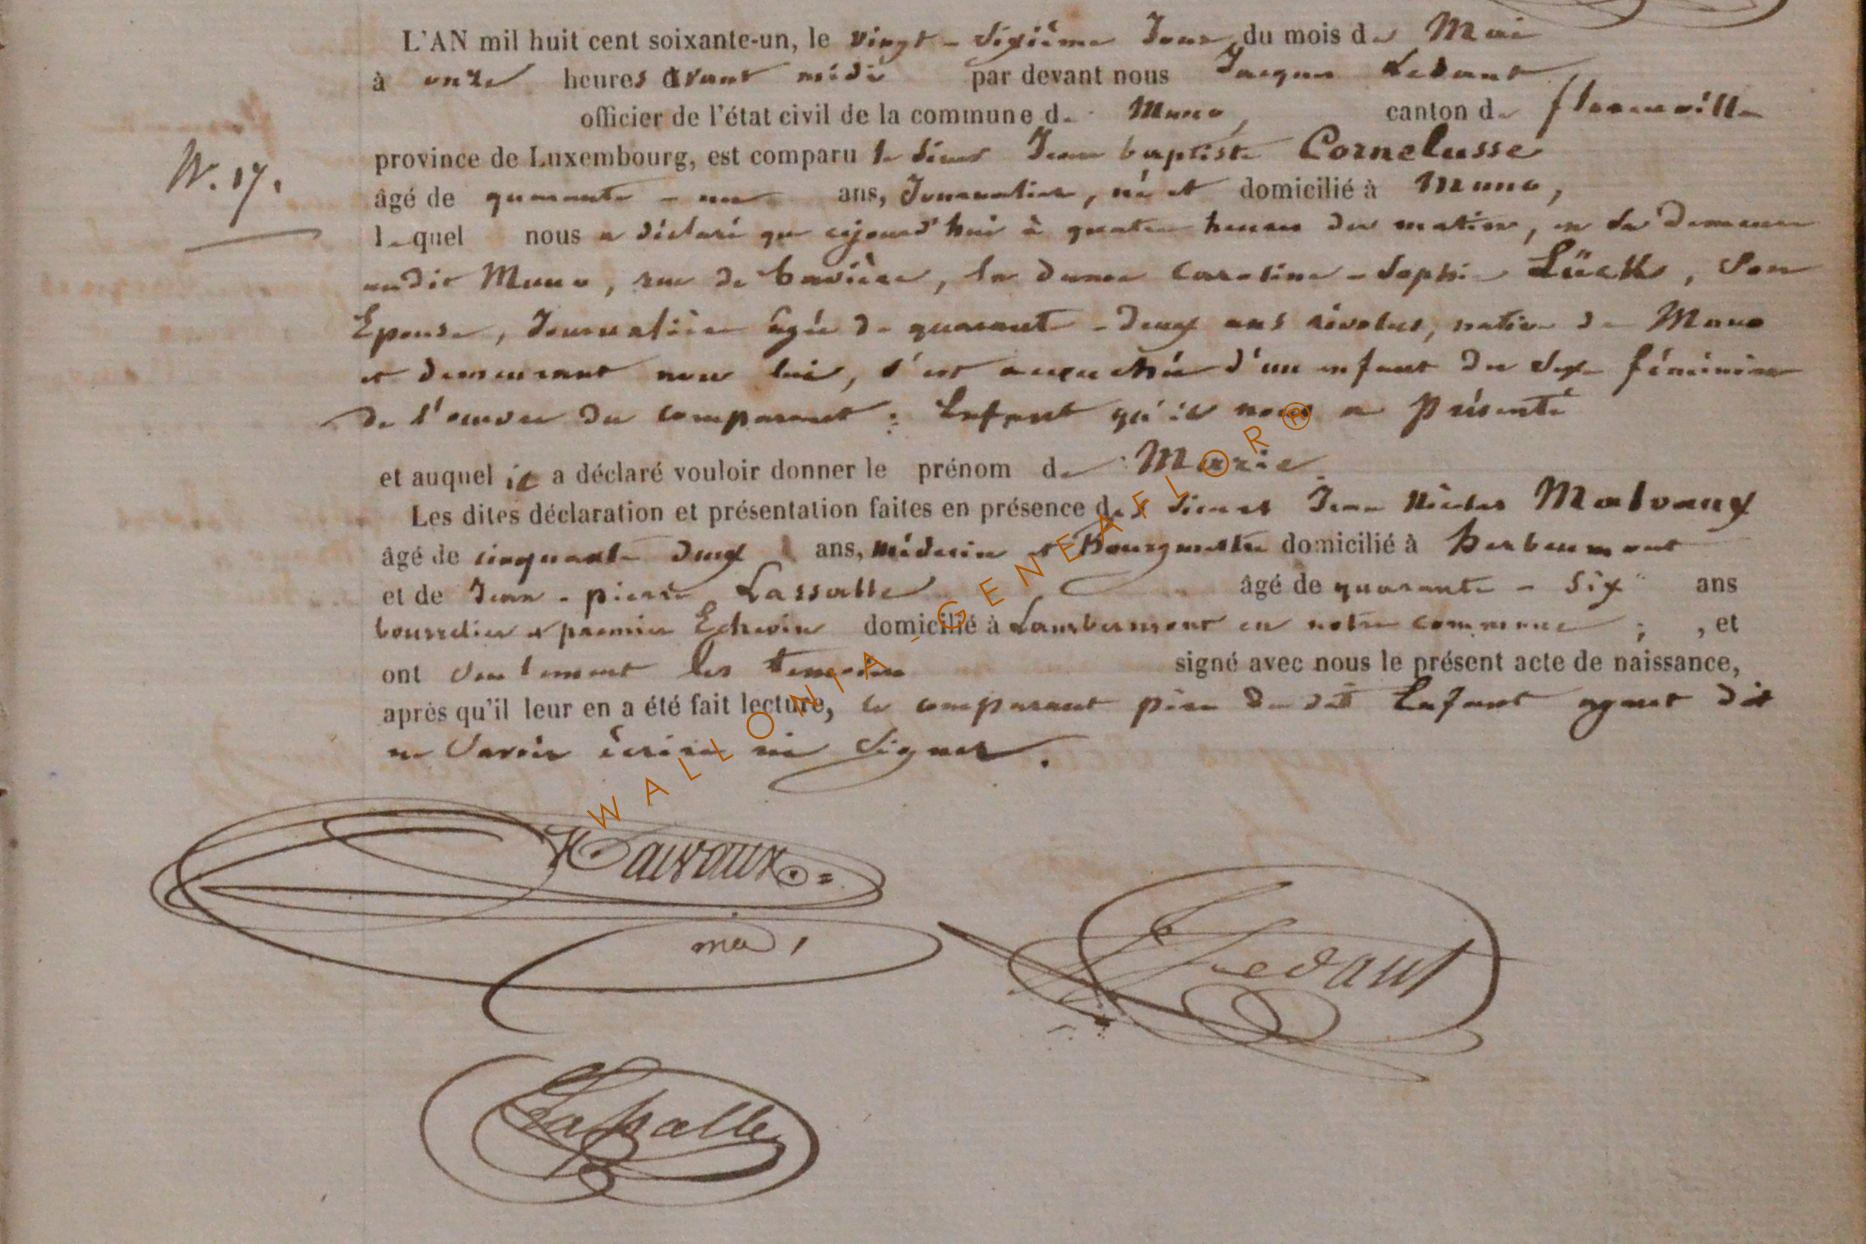 L'AN mil huit cent soixante-un, le vingt-sixième Jour du mois de Mai
à onze heures avant midi par devant nous Jacques Ledant
officier de l'état civil de la commune de Muno, canton de florenville
province de Luxembourg, est comparu le sieur Jean baptiste Cornelusse
N. 17.
âgé de quarante-un ans, Journalier, né et domicilié à Muno,
lequel nous a déclaré que cejourd'hui à quatre heures du matin, en sa demeure
audit Muno, rue de bavière, la dame Caroline-Sophie Lück, son
Epouse, Journalière âgée de quarante-deux ans révolus, native de Muno
et demeurant avec lui, s'est accouchée d'un enfant du sexe féminin
de l'œuvre du comparant; Enfant qu'il nous a présenté
et auquel il a déclaré vouloir donner le prénom de Marie
Les dites déclaration et présentation faites en présence des sieurs Jean Nicolas Malvaux
âgé de cinquante deux ans, médecin et Bourgmestre domicilié à herbeumont
et de Jean-pierre Lassalle âgé de quarante-six ans
bourrelier et premier Echevin domicilié à Lambermont en notre commune ; , et
ont seulement les temoins signé avec nous le présent acte de naissance,
après qu'il leur en a été fait lecture, le comparant père dudit Enfant ayant dit
ne savoir écrire ni signer.
WALLONIA-GENEAFLOR®
md,
Ledant
Lassalle